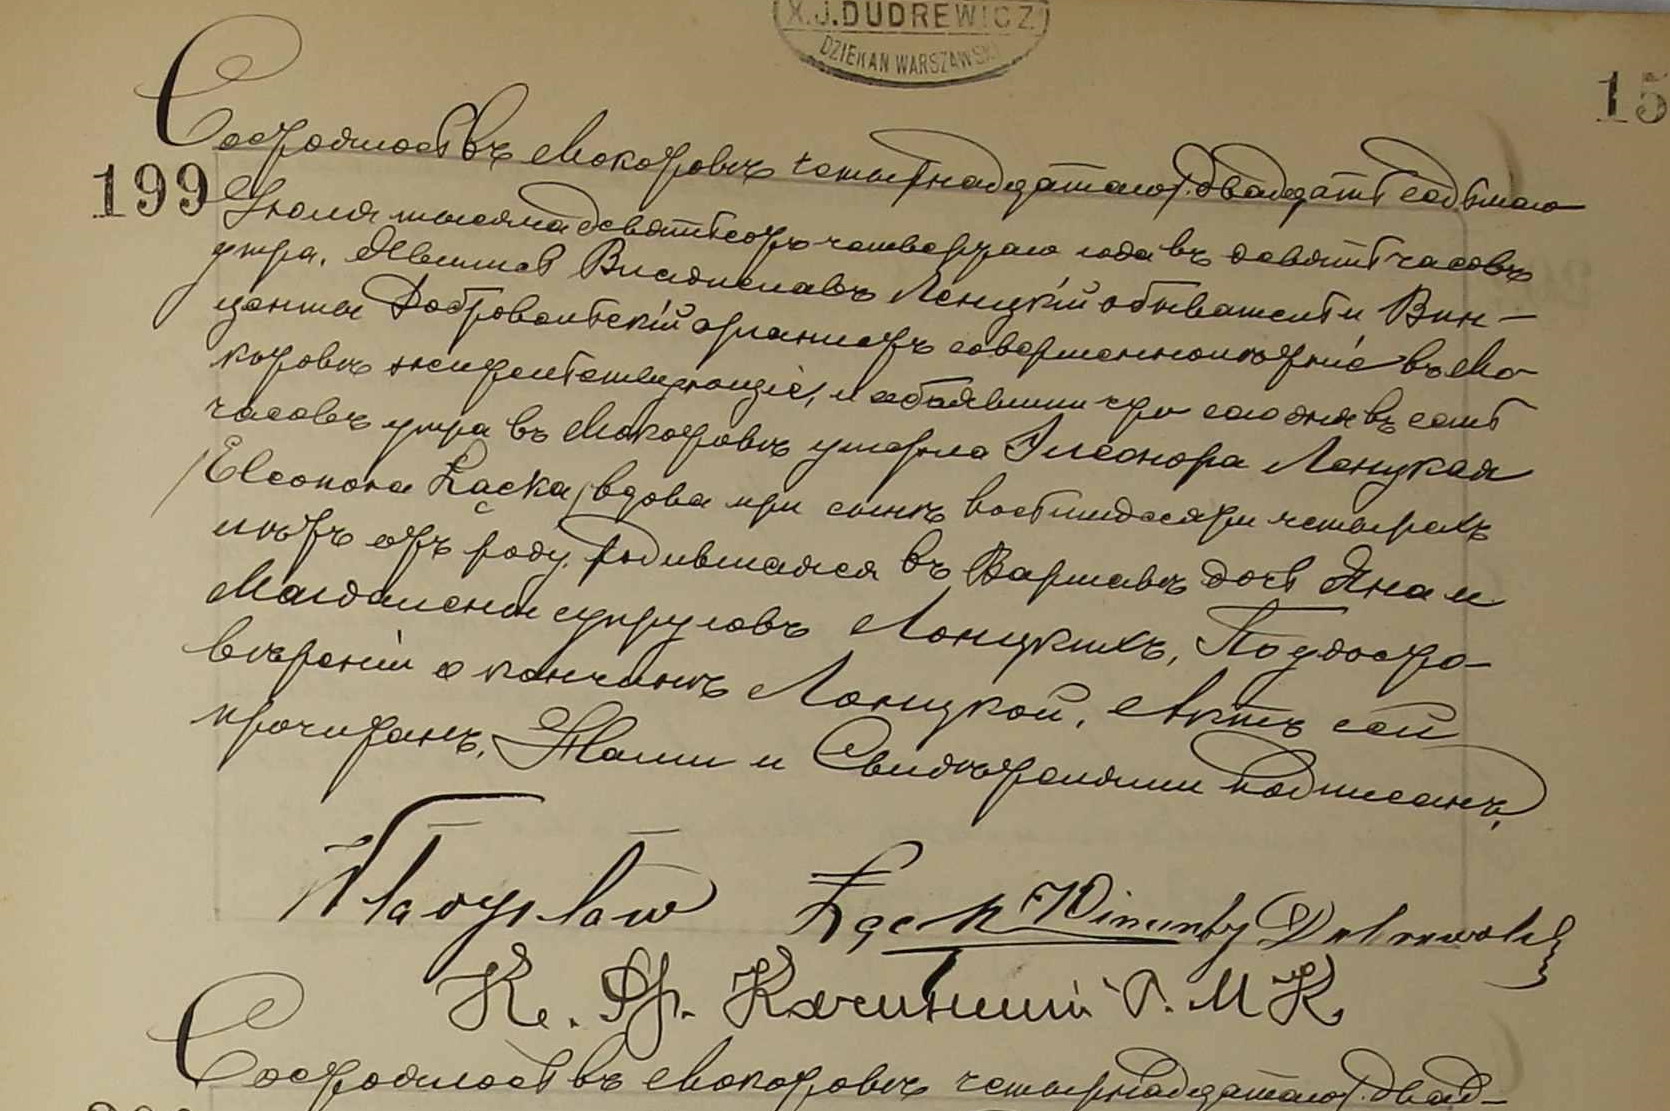 X.J.DUDREWICZ
DZIEKAN WARSZAWSKI
15
199
Состоялось въ Мокотовѣ четырнадцатаго /двадцать седьмаго/
Іюля тысяча девятьсотъ четвертаго года въ девять часовъ
утра. Явились Владиславъ Лонцкій обыватель и Вин-
центы Добровольскій органистъ совершеннолѣтніе въ Мо-
котовѣ жительствующіе, и объявили что сего дня въ семь
часовъ утра въ Мокотовѣ умерла Элеонора Лонцкая
/Eleonora Łącka/ вдова при сынѣ восьмидесяти четырехъ
лѣтъ отъ роду, родившаяся въ Варшавѣ дочь Яна и
Магдалены супруговъ Лонцкихъ. По удосто-
вѣреніи о кончинѣ Лонцкой, Актъ сей
прочитанъ, Нами и Свидѣтелями подписанъ.
Władysław Łącki Wincenty Dobrowolski
Кс. Фр. М К
Состоялось въ Мокотовѣ четырнадцатаго /двад-